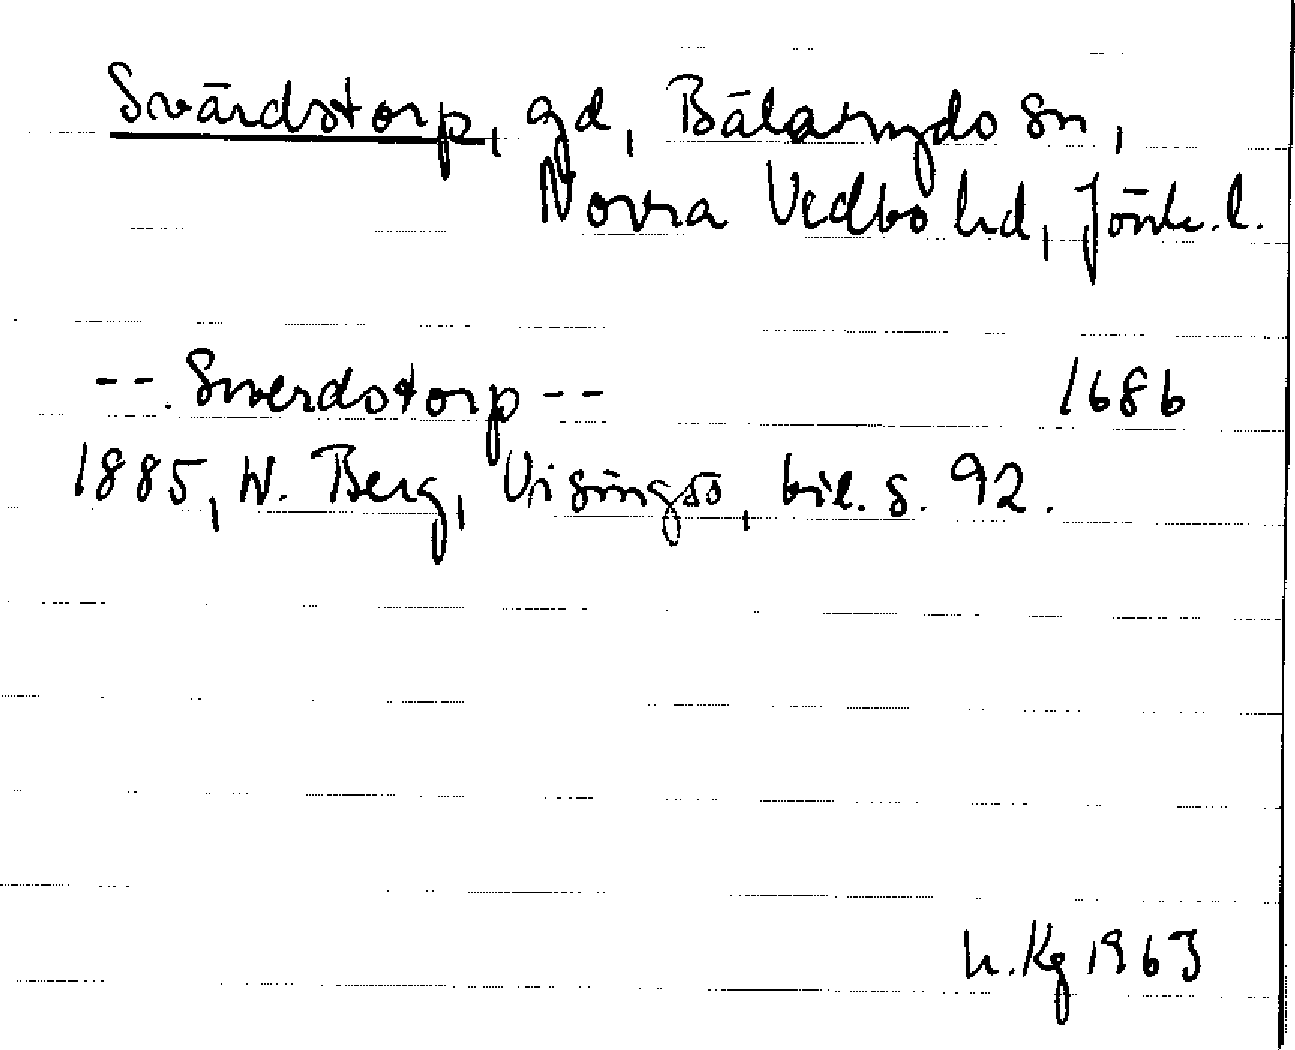 Svärdstorp, gd, Bälaryds sn,
Norra Vedbo hd, Jönk. l.
-- Swerdstorp -- 1686
1885, W. Berg, Visingsö, bil. s. 92.
h. Kg 1963